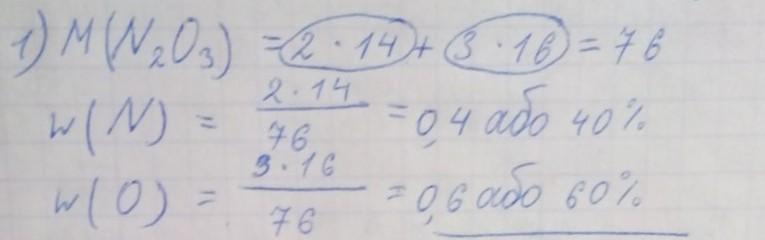 1) M(N₂O₃) = 2 · 14 + 3 · 16 = 76
w(N) = 2 · 14 / 76 = 0,4 або 40%
w(O) = 3 · 16 / 76 = 0,6 або 60%